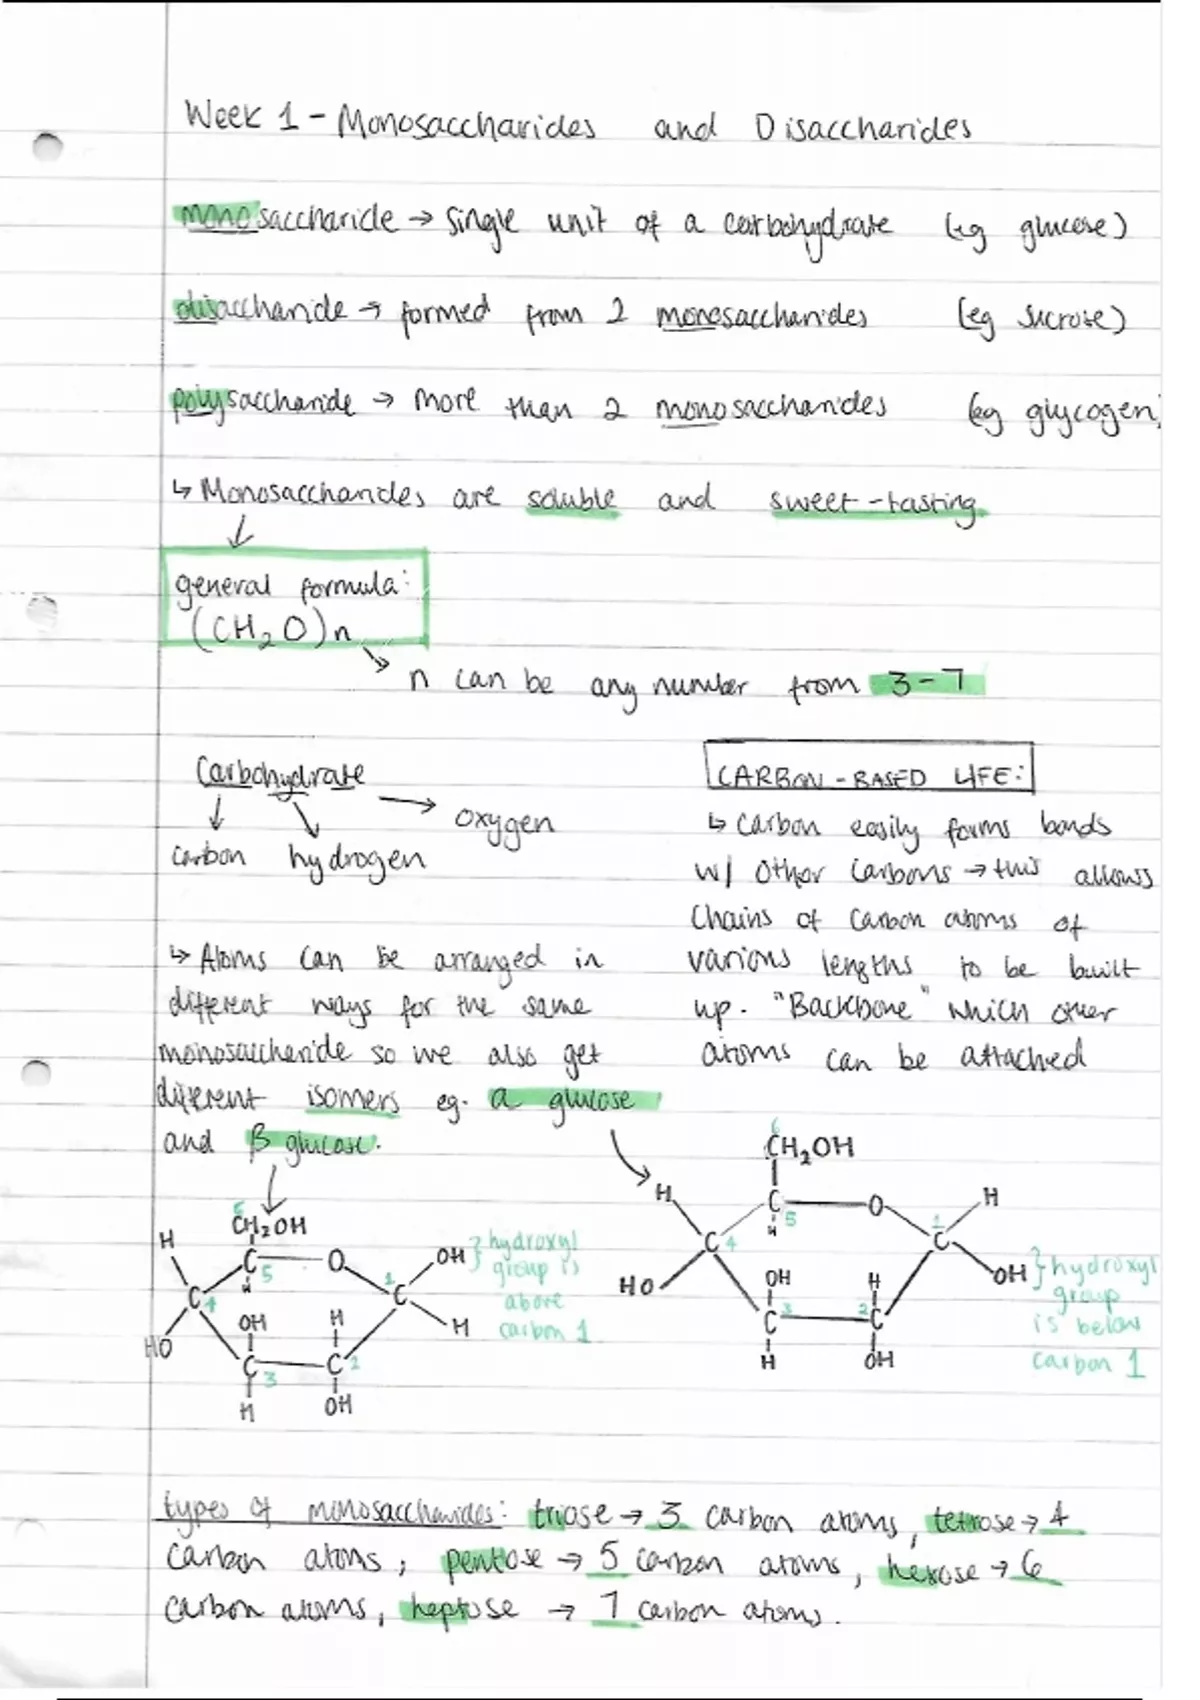 Week 1 - Monosaccharides and Disaccharides
monosaccharide → Single unit of a carbohydrate (eg glucose)
disaccharide → formed from 2 monosaccharides (eg sucrose)
polysaccharide → More than 2 monosaccharides (eg glycogen)
↳ Monosaccharides are soluble and sweet-tasting
general formula:
(CH₂O)n
n can be any number from 3-7
Carbohydrate
oxygen
carbon hydrogen
CARBON-BASED LIFE:
↳ Carbon easily forms bonds
w/ other Carbons → this allows
Chains of Carbon atoms of
various lengths to be built
up. "Backbone" which other
atoms can be attached
↳ Atoms can be arranged in
different ways for the same
monosaccharide so we also get
different isomers eg. a glucose
and β glucose.
6
CH₂OH
H
C
5
O
H
C
4
HO
OH
C
3
H
H
C
2
OH
1
C
OH
H
} hydroxyl
group is
above
carbon 1
6
CH₂OH
H
C
5
O
H
C
4
HO
OH
C
3
H
H
2
C
OH
1
C
H
OH
} hydroxyl
group
is below
carbon 1
types of monosaccharides: triose → 3 carbon atoms, tetrose → 4
carbon atoms, pentose → 5 carbon atoms, hexose → 6
carbon atoms, heptose → 7 carbon atoms.